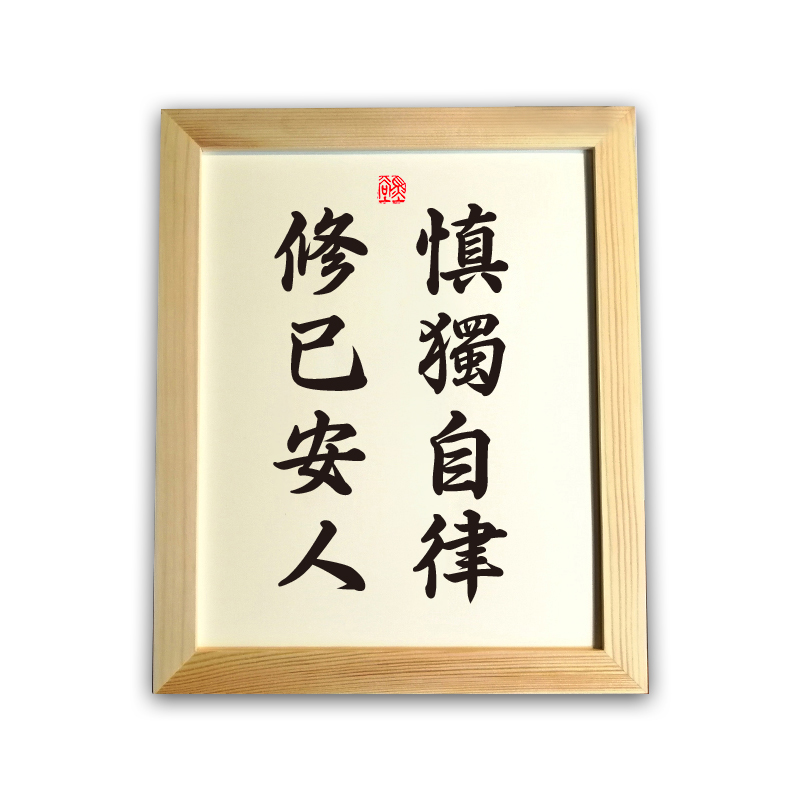 慎獨自律
修己安人